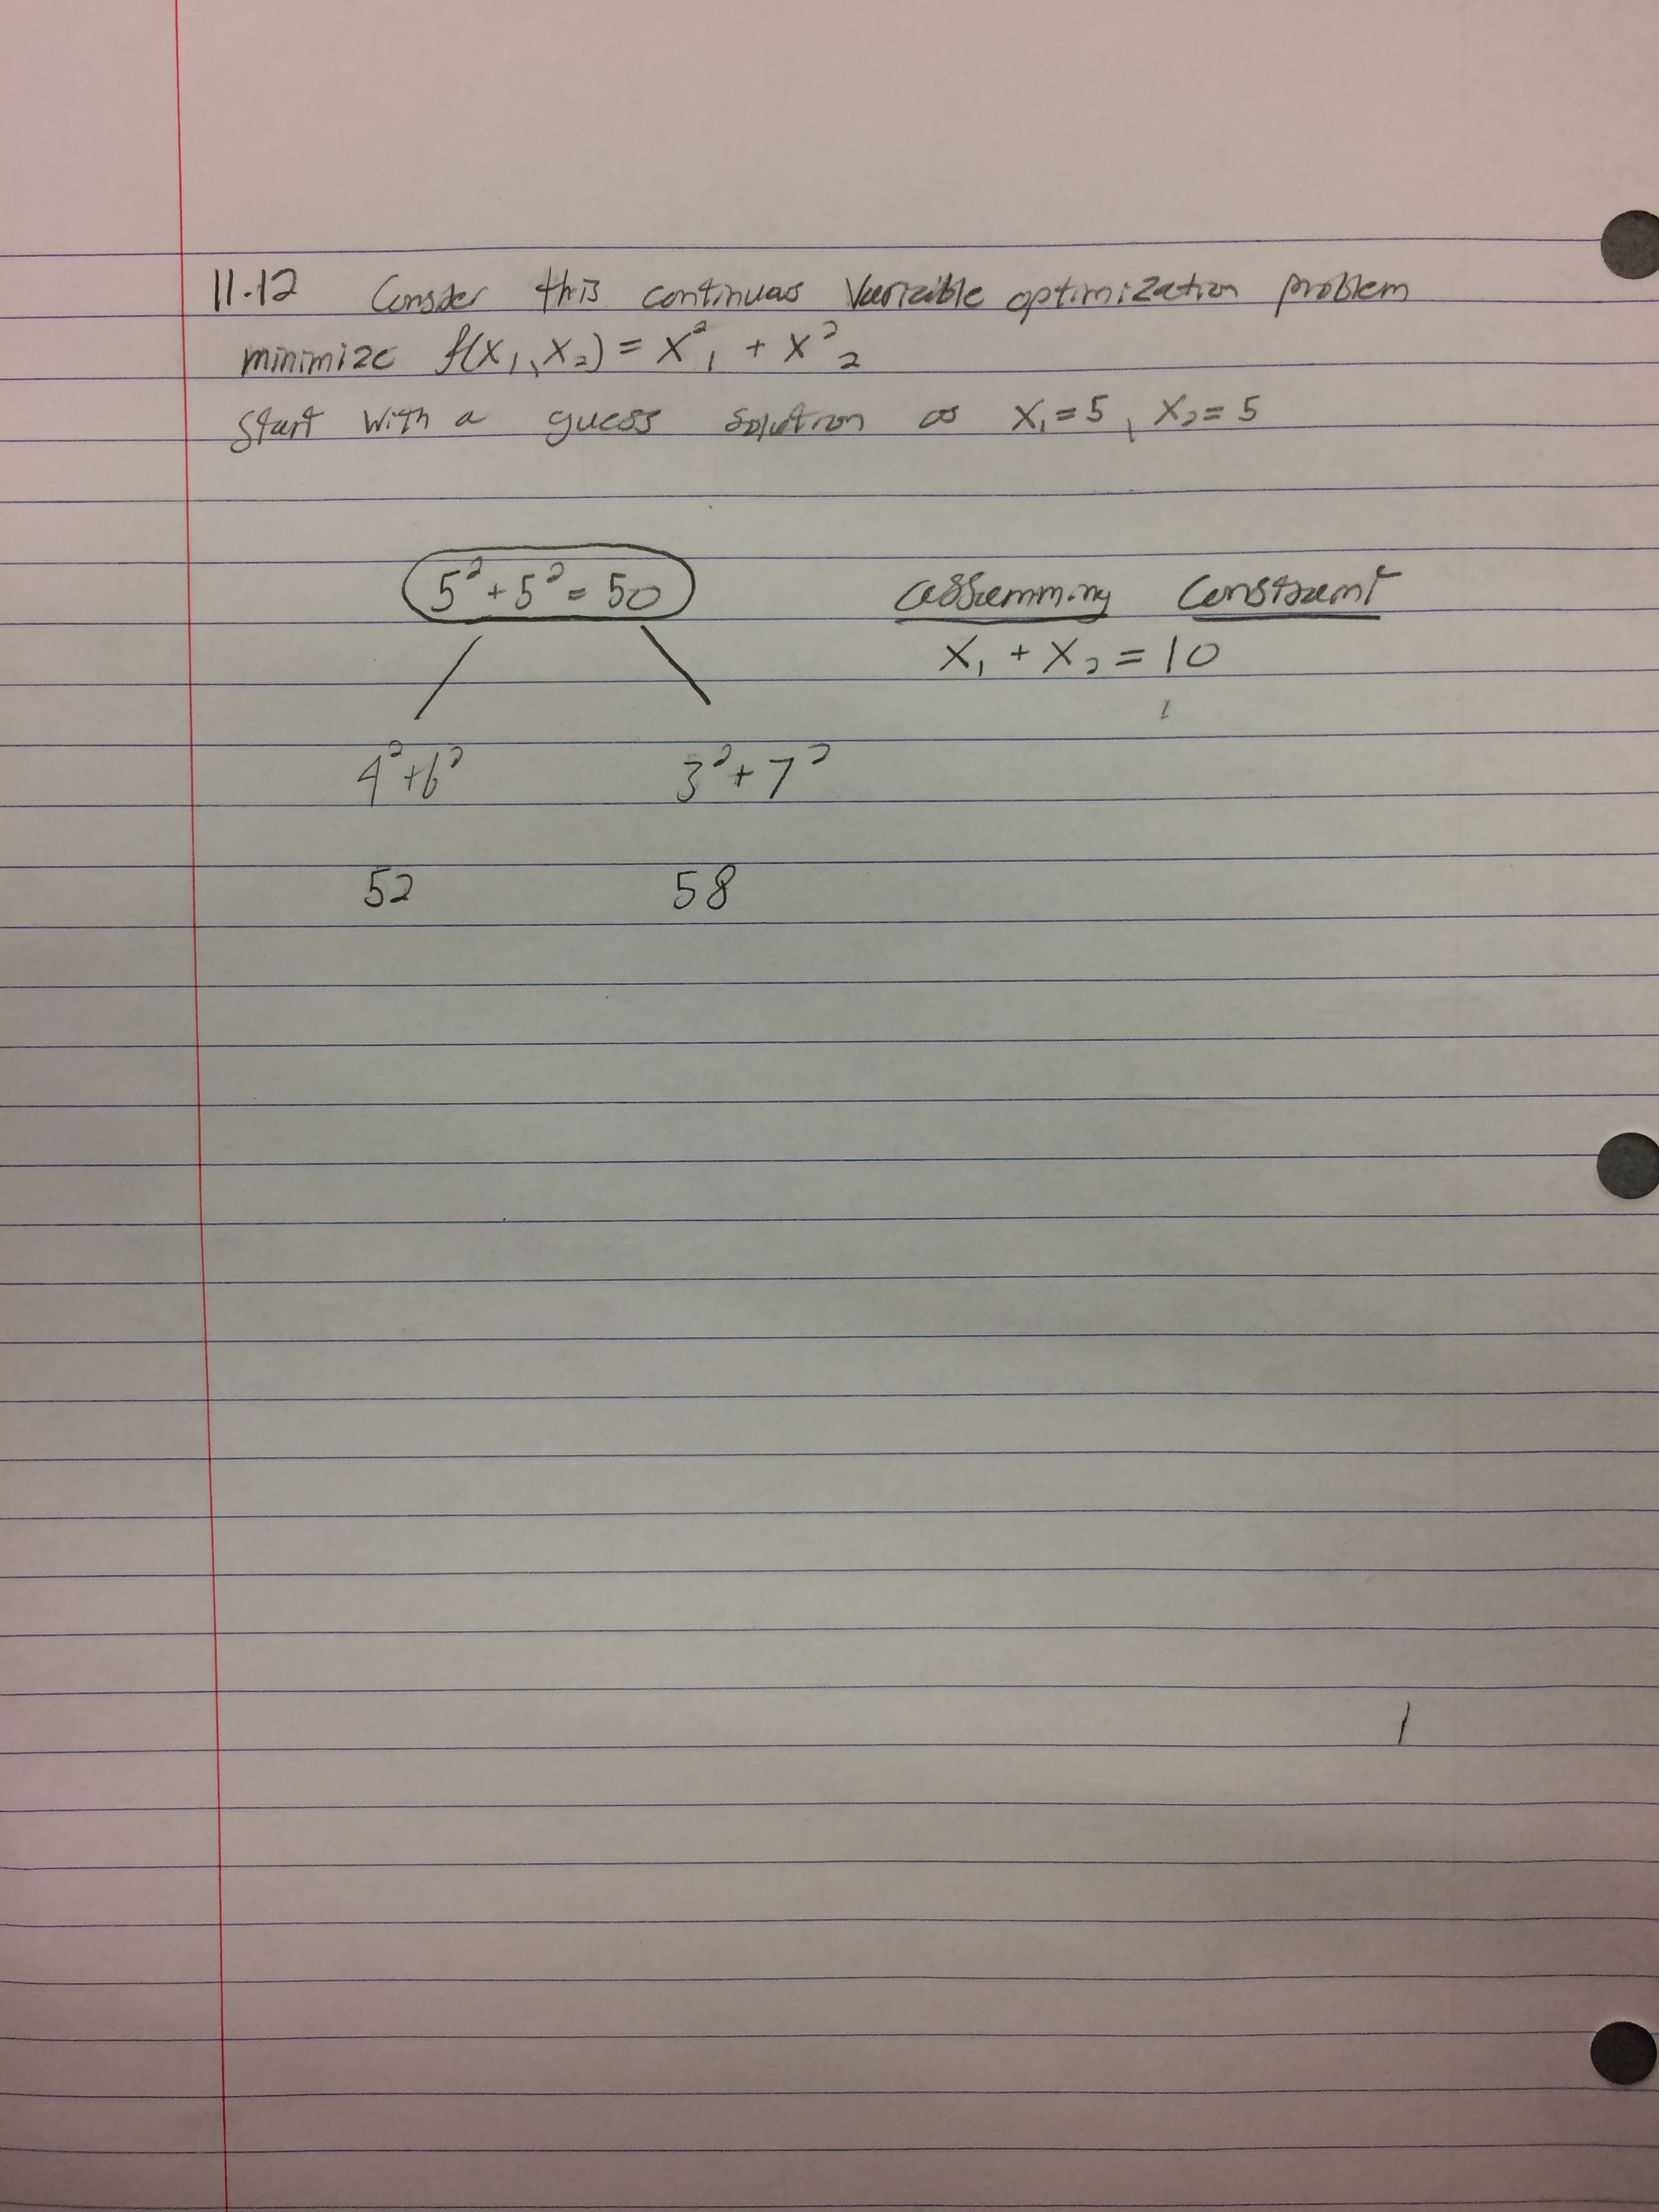 11.12 Consder this continuous Variable optimization problem
minimize f(x₁, x₂) = x²₁ + x²₂
Start with a guess solution as x₁ = 5, x₂ = 5
5² + 5² = 50 assumming Constraint
x₁ + x₂ = 10
4² + 6² 3² + 7²
52 58